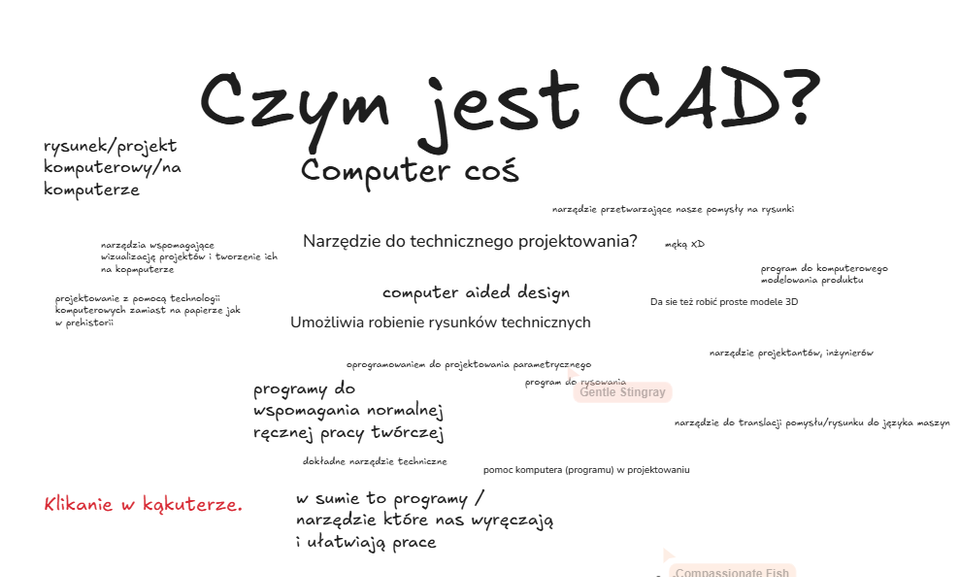 Czym jest CAD?
rysunek/projekt
komputerowy/na
komputerze
Computer coś
narzędzie przetwarzające nasze pomysły na rysunki
Narzędzie do technicznego projektowania?
męką XD
narzędzia wspomagające
wizualizację projektów i tworzenie ich
na kopmputerze
program do komputerowego
modelowania produktu
projektowanie z pomocą technologii
komputerowych zamiast na papierze jak
w prehistorii
computer aided design
Da sie też robić proste modele 3D
Umożliwia robienie rysunków technicznych
narzędzie projektantów, inżynierów
oprogramowaniem do projektowania parametrycznego
program do rysowania
Gentle Stingray
programy do
wspomagania normalnej
ręcznej pracy twórczej
narzędzie do translacji pomysłu/rysunku do języka maszyn
dokładne narzędzie techniczne
pomoc komputera (programu) w projektowaniu
Klikanie w kąkuterze.
w sumie to programy /
narzędzie które nas wyręczają
i ułatwiają prace
Compassionate Fish